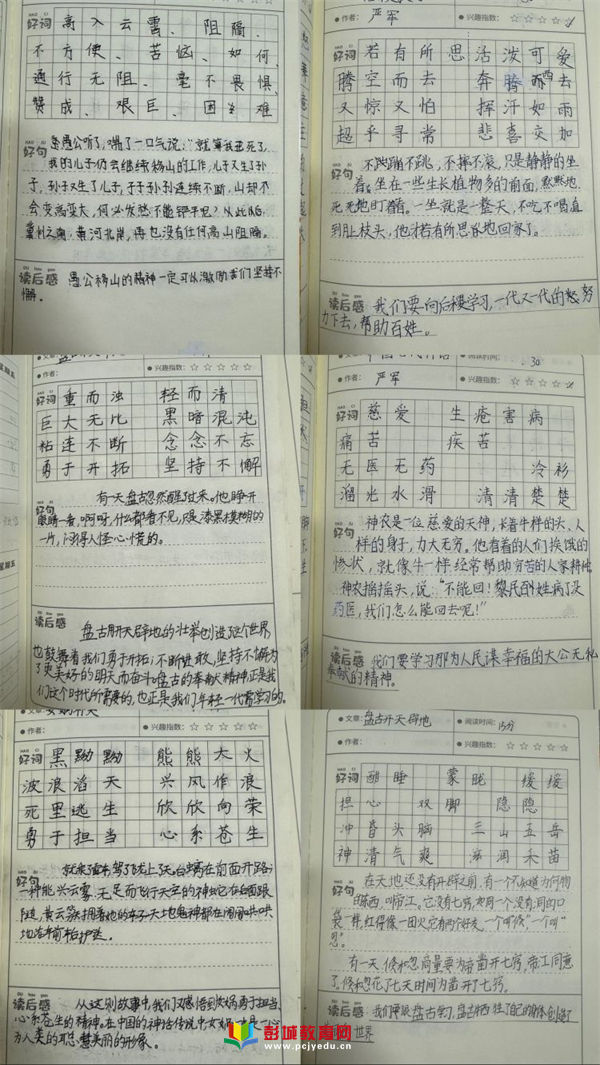 好词 高入云霄、阻隔、
不方便、苦恼、如何、
通行无阻、毫不畏惧、
赞成、艰巨、困难
好句 愚公听了，叹了一口气说：“就算我老死了，
我的儿子仍会继续移山的工作，儿子又生了孙
子，孙子又生了儿子，子子孙孙连续不断，山却不
会变高变大，何必发愁不能铲平呢？从此以后，
冀州之南，黄河北岸，再也没有任何高山阻隔。
读后感 愚公移山的精神一定可以激励我们坚持不
懈。
作者： 严军 兴趣指数：
好词 若有所思 活泼可爱
腾空而去 奔腾而去
又惊又怕 挥汗如雨
超乎寻常 悲喜交加
好句 不跳蹦不跳，不摔不滚，只是静静的坐
着，坐在一些生长植物多的前面，默默地
死死地盯着。一坐就是一整天，不吃不喝直
到月上枝头，他才若有所思地回家了。
读后感 我们要向后稷学习，一代又一代的努
力下去，帮助百姓。
作者： 兴趣指数：
好词 重而浊 轻而清
巨大无比 黑暗混沌
粘连不断 念念不忘
勇于开拓 坚持不懈
好句 有一天盘古忽然醒过来。他睁开
眼睛一看，啊呀，什么都看不见，只是漆黑模糊的
一片，闷得人怪心慌的。
读后感 盘古开天辟地的壮举创造了这个世界
也鼓舞着我们勇于开拓，不断进取，坚持不懈为
了更美好的明天而奋斗。盘古的奉献精神正是我
们这个时代所需要的，也正是我们年轻一代需学习的。
阅读时间： 30
作者： 严军 兴趣指数：
好词 慈爱 生疮害病
痛苦 疾苦
无医无药 冷衫
溜光水滑 清清楚楚
好句 神农是一位慈爱的天神，长着牛样的头、人
样的身子，力大无穷。他看着的人们挨饿的
惨状，就像牛一样经常帮助穷苦的人家耕地。
神农摇摇头，说：“不能回！黎民百姓病了没
药医，我们怎么能回去呢！”
读后感 我们要学习那为人民谋幸福的大公无私
奉献的精神。
作者： 兴趣指数：
好词 黑黝黝 熊熊大火
波浪滔天 兴风作浪
死里逃生 欣欣向荣
勇于担当 心系苍生
好句
一种能兴云雾，无足而飞行天空的神蛇它在后面跟
读后感 从这则故事中，我们又感悟到女娲勇于担当，
心系苍生的精神。在中国的神话传说中女娲
为人类的 美丽的形象。
文章：盘古开天辟地 阅读时间： 15分
作者： 兴趣指数：
好词 酣睡 蒙眬 缓缓
担心 双脚 隐隐
冲昏头脑 三山五岳
神清气爽 滋润禾苗
好句 在天地还没有开辟之前，有一个不知道为何物
的东西，叫帝江。它没有七窍，如同一个没有洞的口
袋一样，红得像一团火，它有两个好友，一个叫“倏”，一个叫“
忽”。
有一天，倏和忽商量要为帝凿开七窍，帝江同意
了，倏和忽花了七天时间为凿开了七窍。
读后感 我们要跟盘古学习，盘古牺牲了自己的身体创造了
世界
彭城教育网
www.pcjyedu.cn